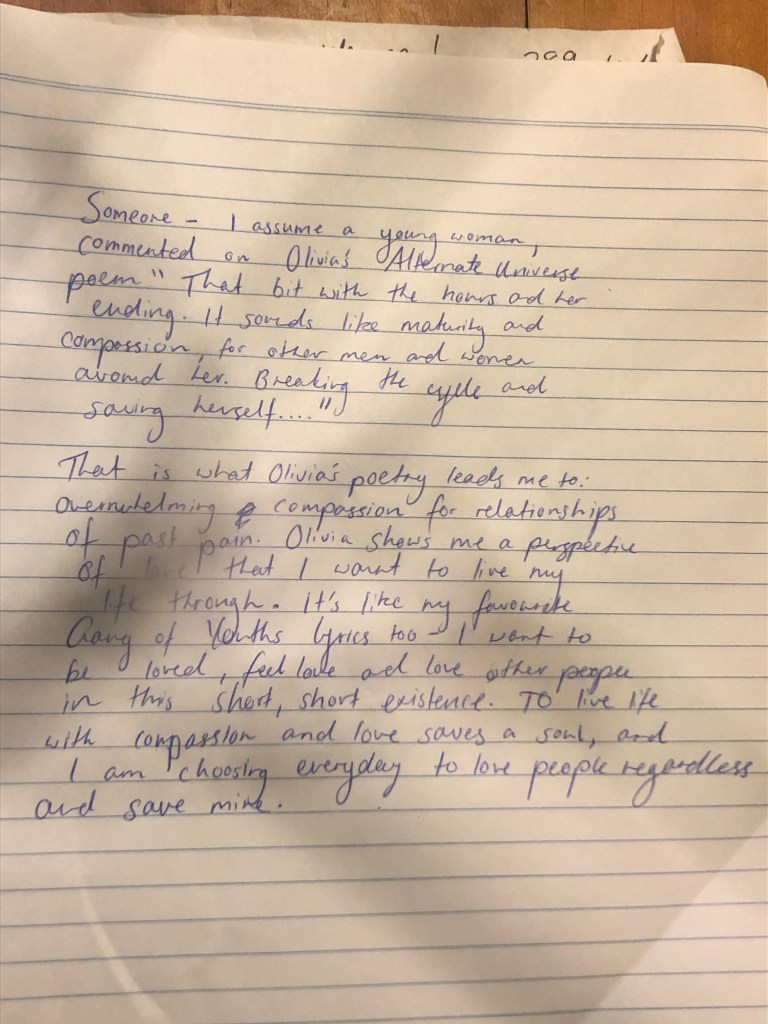 Someone - I assume a young woman,
commented on Olivia's Alternate Universe
poem " That bit with the hours and her
ending. It sounds like maturity and
compassion, for other men and women
around her. Breaking the cycle and
saving herself...."
That is what Olivia's poetry leads me to:
overwhelming compassion for relationships
of past pain. Olivia shows me a perspective
of love that I want to live my
life through. It's like my favourite
Gang of Youths lyrics too - I want to
be loved, feel love and love other people
in this short, short existence. To live life
with compassion and love saves a soul, and
I am choosing everyday to love people regardless
and save mine.